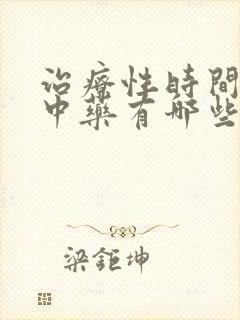 治療性時間
中藥有哪些
梁鉅坤